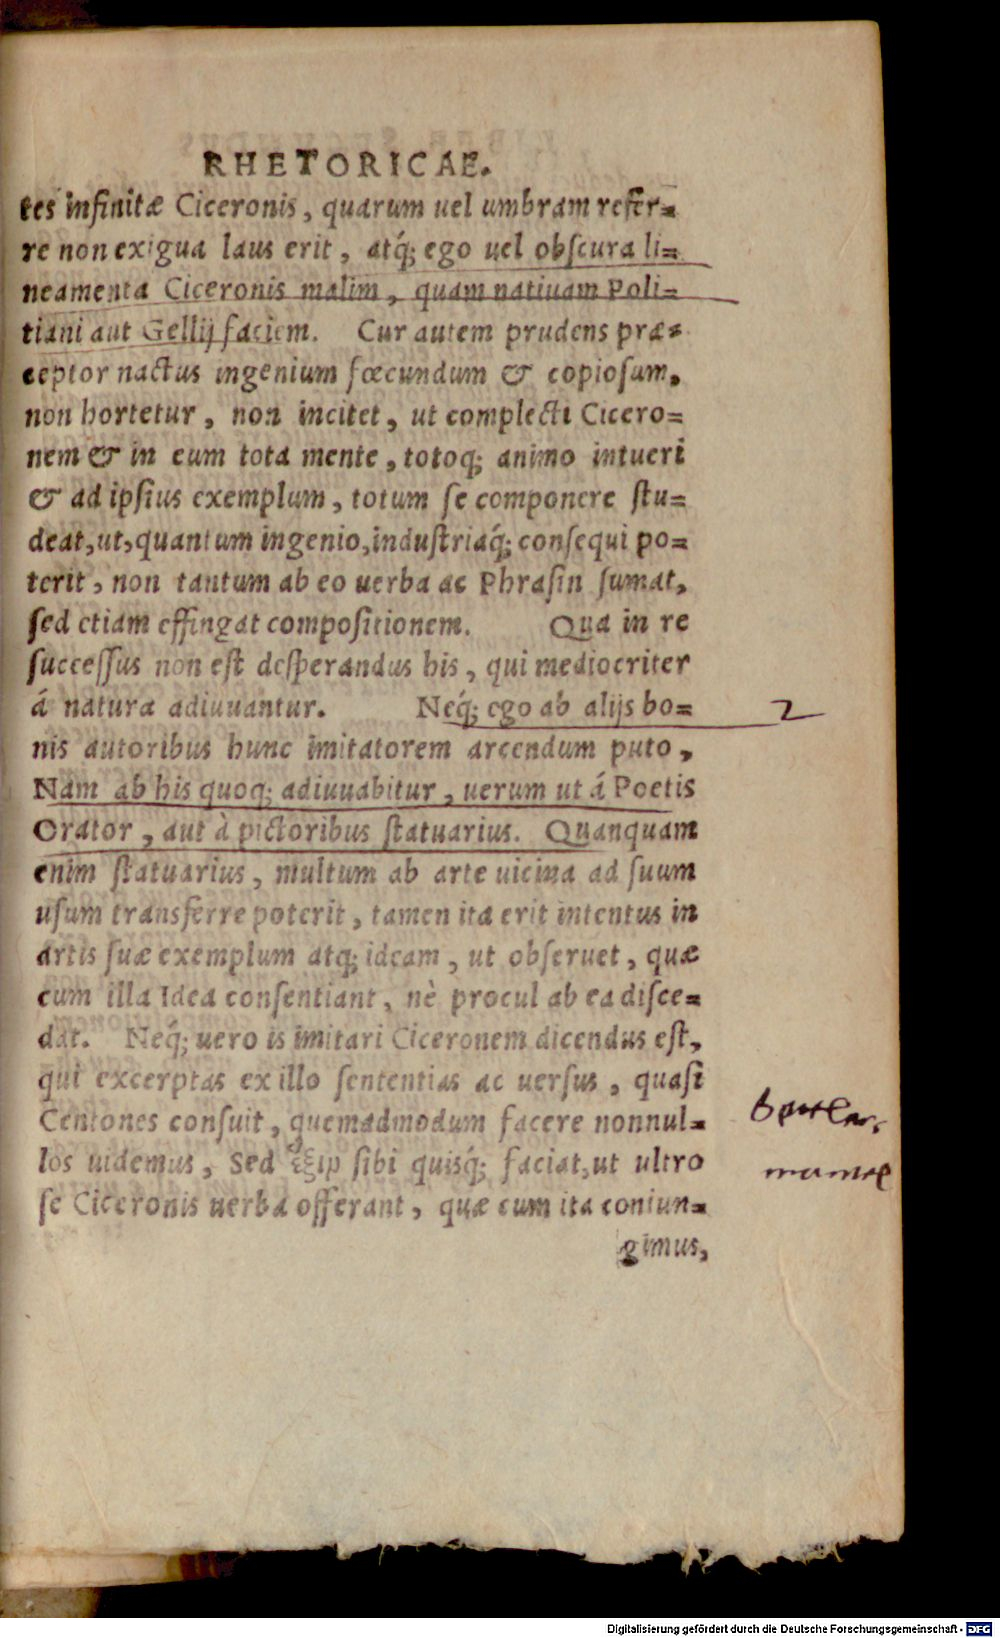 RHETORICAE.
tes infinitæ Ciceronis, quarum uel umbram refer=
re non exigua laus erit, atq́; ego uel obscura li=
neamenta Ciceronis malim, quam natiuam Poli=
tiani aut Gellij faciem. Cur autem prudens præ=
ceptor nactus ingenium fœcundum & copiosum,
non hortetur, non incitet, ut complecti Cicero=
nem & in eum tota mente, totoq; animo intueri
& ad ipsius exemplum, totum se componere stu=
deat, ut, quantum ingenio, industriaq́; consequi po=
terit, non tantum ab eo uerba ac Phrasin sumat,
sed etiam effingat compositionem. Qua in re
successus non est desperandus his, qui mediocriter
á natura adiuuantur. Neq́; ego ab alijs bo=
2
nis autoribus hunc imitatorem arcendum puto,
Nam ab his quoq; adiuuabitur, uerum ut á Poetis
Orator, aut à pictoribus statuarius. Quanquam
enim statuarius, multum ab arte uicina ad suum
usum transferre poterit, tamen ita erit intentus in
artis suæ exemplum atq; ideam, ut obseruet, quæ
cum illa Idea consentiant, nè procul ab ea disce=
dat. Neq́; uero is imitari Ciceronem dicendus est,
qui excerptas ex illo sententias ac uersus, quasi
Centones consuit, quemadmodum facere nonnul=
los uidemus, Sed ἕξιμ sibi quisq́; faciat, ut ultro
se Ciceronis uerba offerant, quæ cum ita coniun=
gimus,
Digitalisierung gefördert durch die Deutsche Forschungsgemeinschaft - DFG